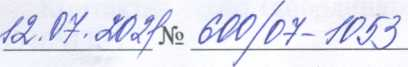 12.07.2021 № 600/07-1053